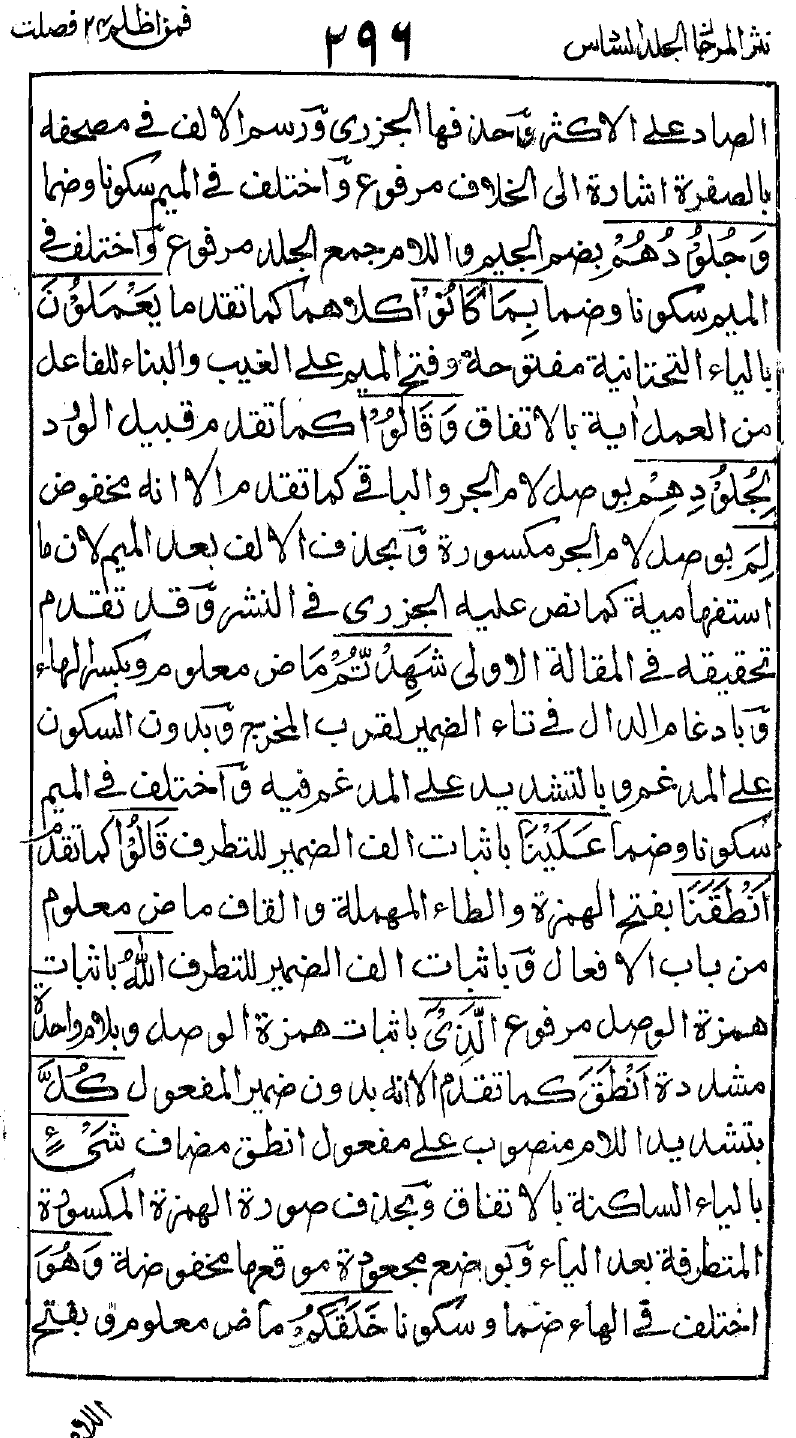 نثر المرجان الجلد السادس ٢٩٦ فمن اظلم ٢٤ فصلت
الصاد على الاكثر وحذفها الجزرى ورسم الالف فى مصحفه
بالصفرة اشارة الى الخلاف مرفوع واختلف فى الميم سكونا وضما
وَجُلُوْدُهُمْ بضم الجيم واللام جمع الجلد مرفوع واختلف فى
الميم سكونا وضما بِمَا كَانُوْا كلاهما كما تقدما يَعْمَلُوْنَ
بالياء التحتانية مفتوحة وفتح الميم على الغيب والبناء للفاعل
من العمل اية بالاتفاق وَقَالُوْا كما تقدم قبيل الورد
لِجُلُوْدِهِمْ بوصل لام الجر والباقى كما تقدم الا انه مخفوض
لِمَ بوصل لام الجر مكسورة وبحذف الالف بعد الميم لان ما
استفهامية كما نص عليه الجزرى فى النشر وقد تقدم
تحقيقه فى المقالة الاولى شَهِدْتُّمْ ماض معلوم وبكسر الهاء
وبادغام الدال فى تاء الضمير لقرب المخرج وبدون السكون
على المدغم وبالتشديد على المدغم فيه واختلف فى الميم
سكونا وضما عَلَيْنَا باثبات الف الضمير للتطرف قَالُوْا كما تقدم
اَنْطَقَنَا بفتح الهمزة والطاء المهملة والقاف ماض معلوم
من باب الافعال وباثبات الف الضمير للتطرف اللّٰهُ باثبات
همزة الوصل مرفوع الَّذِىْ باثبات همزة الوصل وبلام واحدة
مشددة اَنْطَقَ كما تقدم الا انه بدون ضمير المفعول كُلَّ
بتشديد اللام منصوب على مفعول انطق مضاف شَىْءٍ
بالياء الساكنة بالاتفاق وبحذف صورة الهمزة المكسورة
المتطرفة بعد الياء وبوضع مجعودة موقعها مخفوضة وَهُوَ
اختلف فى الهاء ضما وسكونا خَلَقَكُمْ ماض معلوم وبفتح